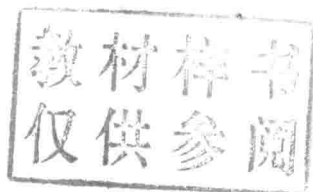 教材样书
仅供参阅